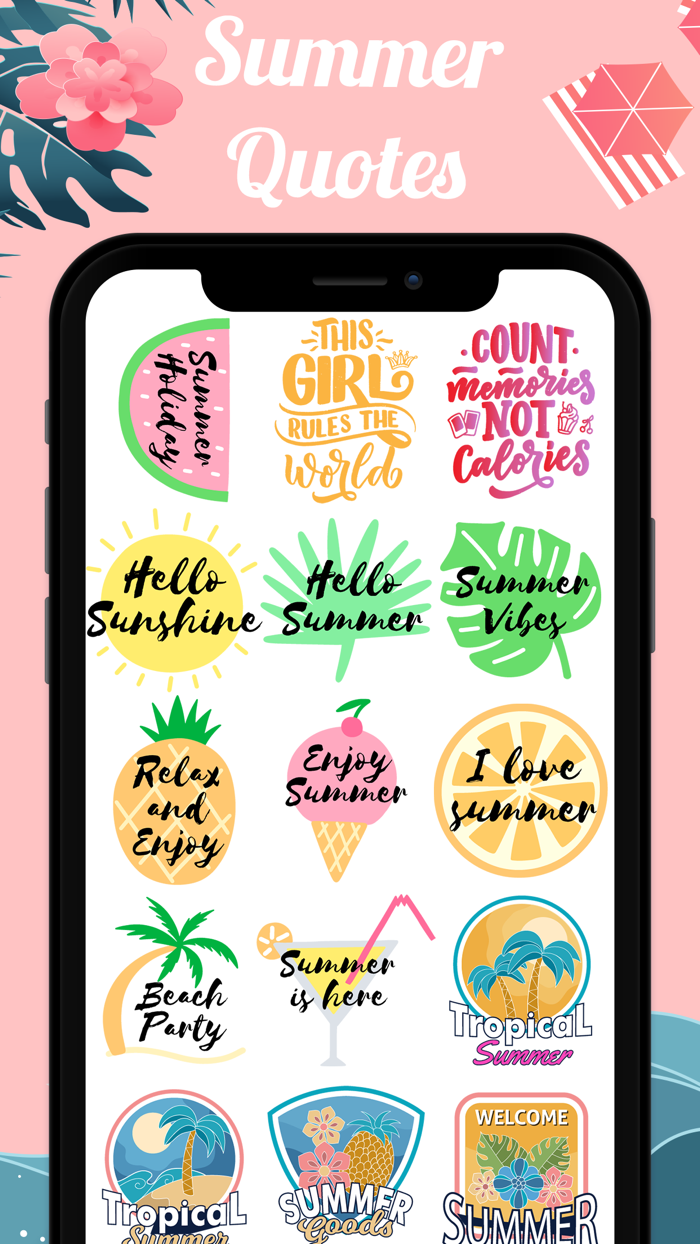 Summer
Quotes
Summer
Holiday
THIS
GIRL
RULES THE
World
COUNT
memories
NOT
Calories
Hello
Sunshine
Hello
Summer
Summer
Vibes
Relax
and
Enjoy
Enjoy
Summer
I love
summer
Beach
Party
Summer
is here
TropicaL
Summer
TropicaL
Summer
SUMMER
Goods
WELCOME
SUMMER